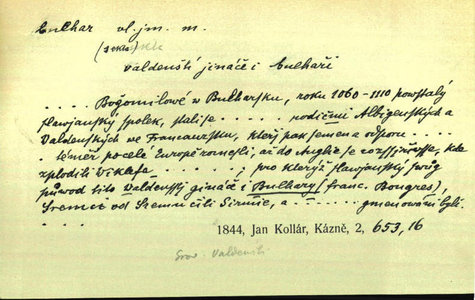 Culhar vl. jm. m.
valdenští jináče i Culhaři
. . . . . Bogomilowé w Bulharsku, roku 1060-1110 powstalý
slowjanský spolek, stali se . . . . . rodičmi Albigenských a
Valdenských we Francauzsku, který pak semena odporu . . . .
téměř po celé Europě roznesli, až do Anglie se rozšířiwše, kde
zplodili Wiklefa . . . . . ; pro kterýž slowjanský swůg
půwod tito Valdenský gináče i Bulhary (franc. Bougres),
Sremci od Sremu čili Sirmie, a . . . . . gmenowáni byli.
. . . .
1844, Jan Kollár, Kázně, 2, 653,16
Srov. Valdenští